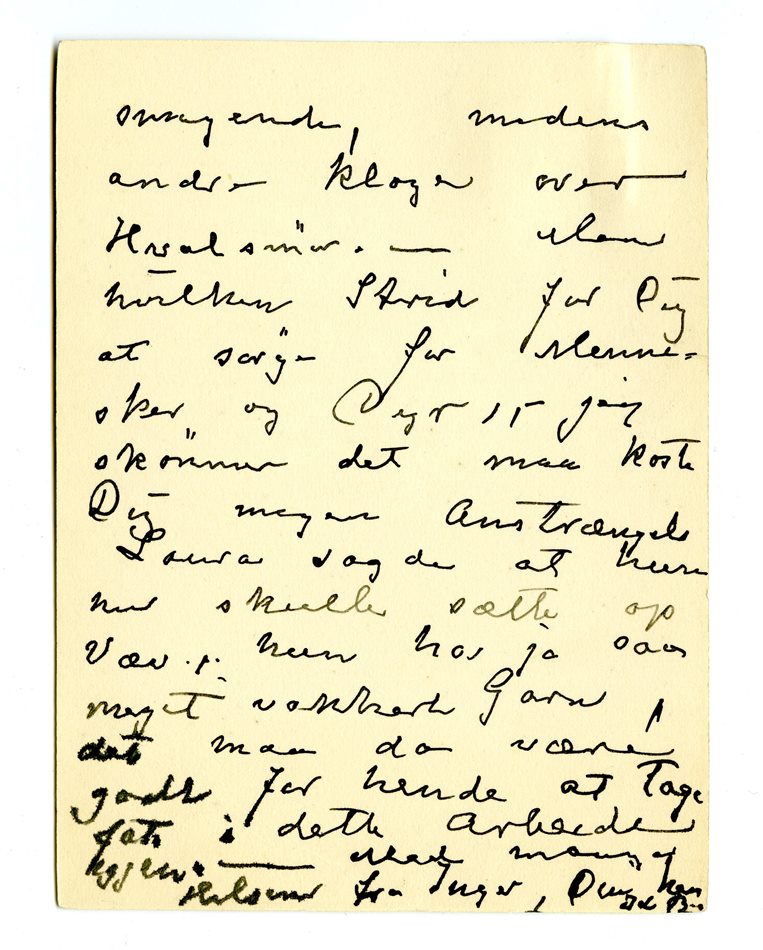 smagende, medens
andre klager over
Hvalsmör. — Men
hvilken Strid for Dig
at sörge for Menne=
sker og Dyr, jeg
skönner det maa koste
Dig megen Anstrængels
Laura sagde at hun
nu skulle sætte op
Væv. hun har ja saa
meget vakkert Garn,
det maa da være
godt for hende at tage
fat i dette Arbeide
igjen. — Med mange
Hilsener fra Inger, Din